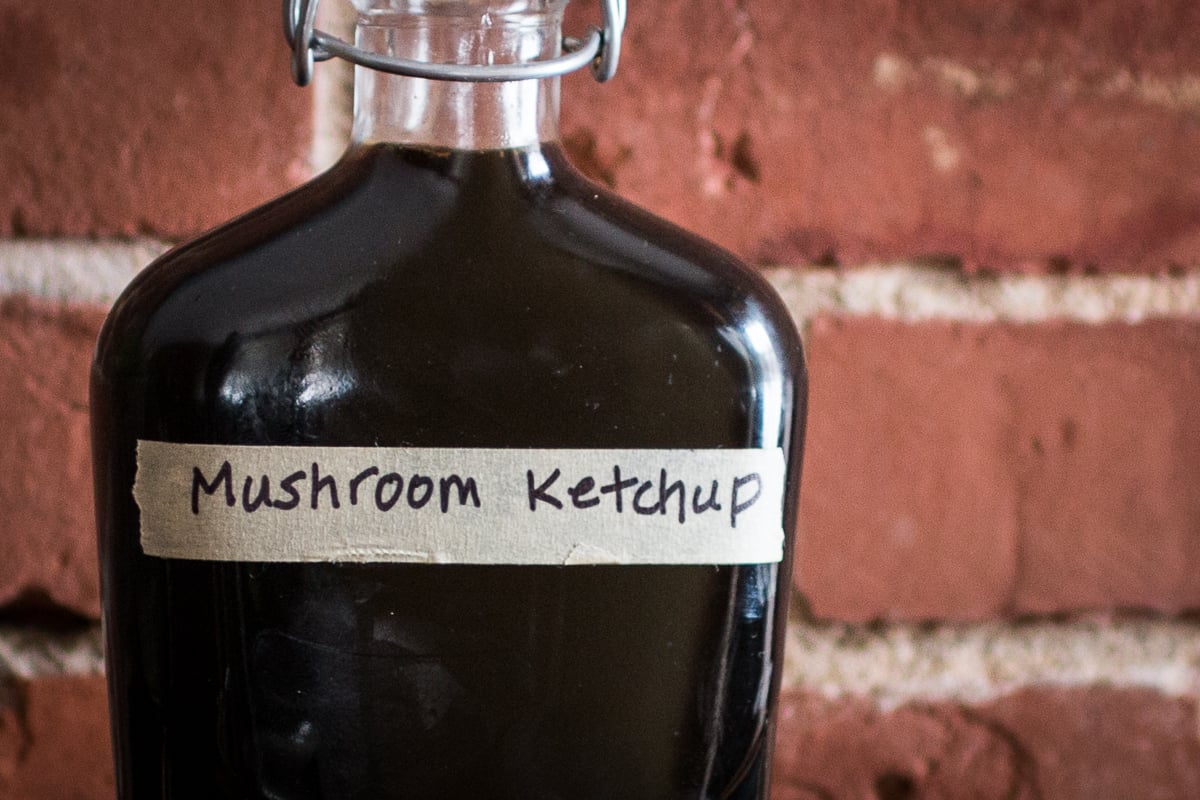 Mushroom Ketchup